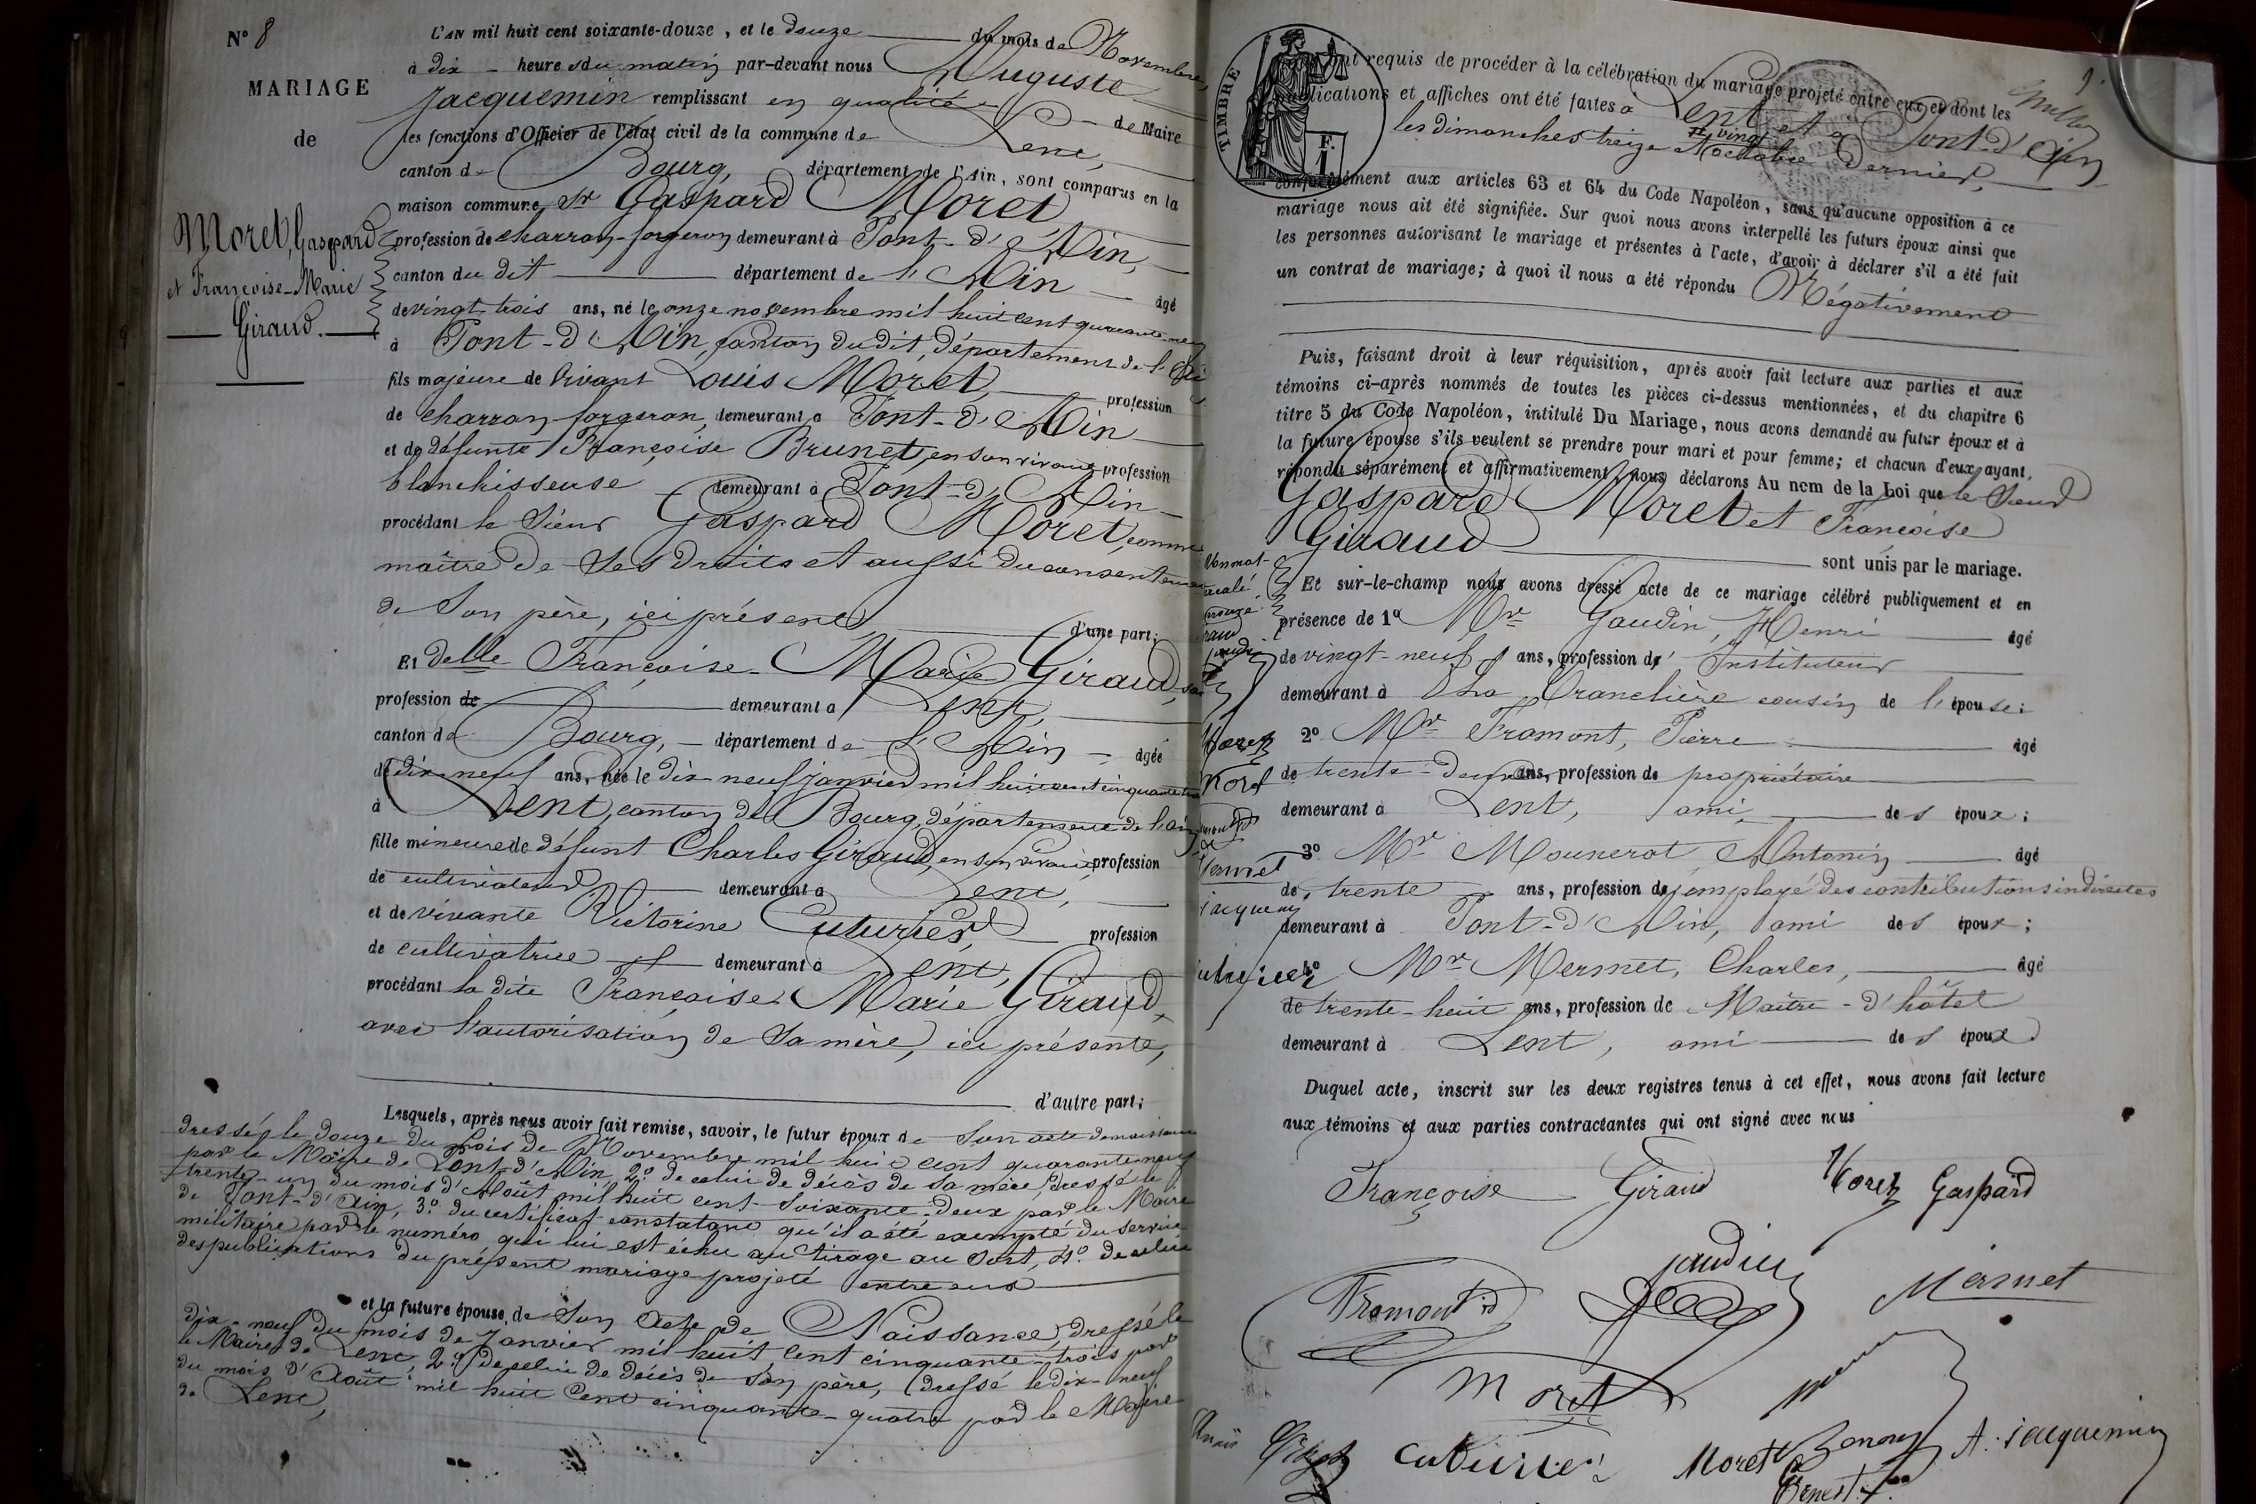 N° 8
MARIAGE
de
Moret, Gaspard
et Françoise-Marie
Giraud.
L'AN mil huit cent soixante-douze, et le douze du mois de Novembre,
à dix heures du matin par-devant nous Auguste
Jacquemin remplissant en qualité de Maire
les fonctions d'Officier de l'état civil de la commune de Lent,
canton de Bourg, département de l'Ain, sont comparus en la
maison commune, Sr Gaspard Moret
profession de charron-forgeron demeurant à Pont-d'Ain,
canton du dit département de l'Ain âgé
de vingt-trois ans, né le onze novembre mil huit cent quarante-neuf
à Pont-d'Ain, canton du dit, département de l'Ain
fils majeure de vivant Louis Moret, profession
de charron forgeron, demeurant à Pont-d'Ain
et de défunte Françoise Brunet, en son vivant profession
blanchisseuse demeurant à Pont-d'Ain
procédant le Sieur Gaspard Moret, comme
maître de ses droits et aussi du consentement
de son père, ici présent d'une part;
Et delle Françoise-Marie Giraud, san
profession de demeurant à Lent,
canton de Bourg, département de l'Ain âgée
de dix-neuf ans, née le dix-neuf janvier mil huit cent cinquante-trois
à Lent, canton de Bourg, département de l'ain
fille mineure de défunt Charles Giraud, en son vivant profession
de cultivateur demeurant à Lent,
et de vivante Victorine Cuturier, profession
de cultivatrice demeurant à Lent,
procédant la dite Françoise Marie Giraud,
avec l'autorisation de sa mère, ici présente,
d'autre part;
Lesquels, après nous avoir fait remise, savoir, le futur époux de son acte de naissance
dressé le douze du mois de Novembre mil huit cent quarante-neuf
par le Maire de Pont-d'Ain, 2° de celui de décès de sa mère dressé le
trente-un du mois d'Août mil huit cent soixante-deux par le Maire
de Pont-d'Ain, 3° du certificat constatant qu'il a été exempté du service
militaire par le numéro qui lui est échu au tirage au sort, 4° de celui
des publications du présent mariage projeté entre eux
et la future épouse, de son acte de Naissance, dressé le
dix-neuf du mois de Janvier mil huit cent cinquante-trois par
le Maire de Lent, 2° de celui de décès de son père, dressé le dix-neuf
du mois d'Août mil huit cent cinquante-quatre par le Maire
de Lent,
TIMBRE
F.
1
9.
ont requis de procéder à la célébration du mariage projeté entre eux et dont les
publications et affiches ont été faites à Lent et à Pont-d'Ain
les dimanches treize et vingt octobre dernier,
conformément aux articles 63 et 64 du Code Napoléon, sans qu'aucune opposition à ce
mariage nous ait été signifiée. Sur quoi nous avons interpellé les futurs époux ainsi que
les personnes autorisant le mariage et présentes à l'acte, d'avoir à déclarer s'il a été fait
un contrat de mariage; à quoi il nous a été répondu Négativement
Puis, faisant droit à leur réquisition, après avoir fait lecture aux parties et aux
témoins ci-après nommés de toutes les pièces ci-dessus mentionnées, et du chapitre 6
titre 5 du Code Napoléon, intitulé Du Mariage, nous avons demandé au futur époux et à
la future épouse s'ils veulent se prendre pour mari et pour femme; et chacun d'eux ayant,
répondu séparément et affirmativement, nous déclarons Au nom de la Loi que le Sieur
Gaspard Moret et Françoise
Giraud sont unis par le mariage.
Et sur-le-champ nous avons dressé acte de ce mariage célébré publiquement et en
présence de 1° Mr Gaudin, Henri âgé
de vingt-neuf ans, profession d'Instituteur
demeurant à la Tranclière cousin de l'épouse;
2° Mr Fromont, Pierre âgé
de trente-deux ans, profession de propriétaire
demeurant à Lent, ami des époux;
3° Mr Mounerot, Antonin âgé
de trente ans, profession d'employé des contributions indirectes
demeurant à Pont-d'Ain, ami des époux;
4° Mr Mermet, Charles, âgé
de trente-huit ans, profession de Maître-d'hôtel
demeurant à Lent, ami des époux
Duquel acte, inscrit sur les deux registres tenus à cet effet, nous avons fait lecture
aux témoins et aux parties contractantes qui ont signé avec nous
Françoise Giraud Moret Gaspard
Gaudin
Fromont Mermet
Moret
Cuturier Moret A. Jacquemin
Ernest